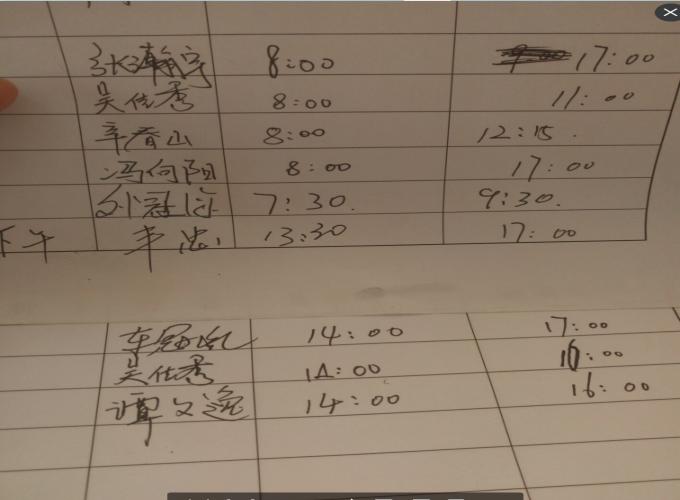 张瀚宇 8:00 17:00
吴佳秀 8:00 11:00
辛春山 8:00 12:15.
冯向阳 8:00 17:00
7:30. 9:30.
下午 13:30 17:00
14:00 17:00
吴佳秀 14:00 16:00
谭文逸 14:00 16:00